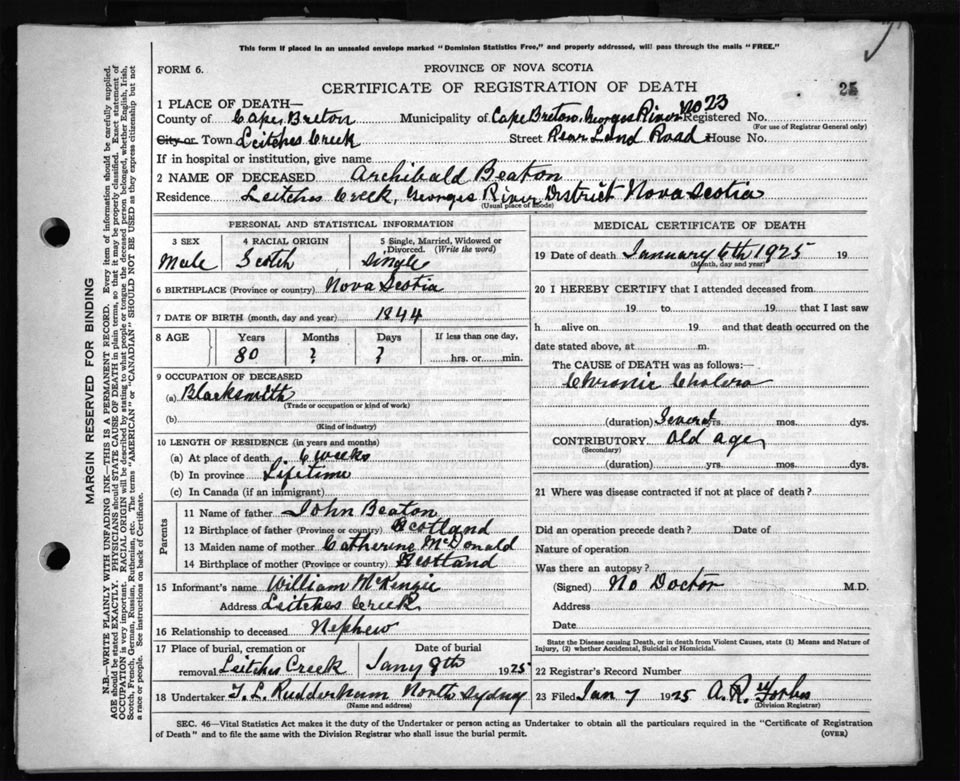 This form if placed in an unsealed envelope marked "Dominion Statistics Free," and properly addressed, will pass through the mails "FREE."
FORM 6.
PROVINCE OF NOVA SCOTIA
CERTIFICATE OF REGISTRATION OF DEATH
25
1 PLACE OF DEATH—
County of Cape Breton Municipality of Cape Breton, Georges River No 23 Registered No.
(For use of Registrar General only)
City or Town Leitches Creek Street Rear Land Road House No.
If in hospital or institution, give name
2 NAME OF DECEASED Archibald Beaton
Residence Leitches Creek, Georges River District Nova Scotia
(Usual place of abode)
PERSONAL AND STATISTICAL INFORMATION
3 SEX 4 RACIAL ORIGIN 5 Single, Married, Widowed or Divorced. (Write the word)
Male Scotch Single
6 BIRTHPLACE (Province or country) Nova Scotia
7 DATE OF BIRTH (month, day and year) 1844
8 AGE Years Months Days If less than one day,
80 ? ? hrs. or min.
9 OCCUPATION OF DECEASED
(a) Blacksmith
(Trade or occupation or kind of work)
(b)
(Kind of industry)
10 LENGTH OF RESIDENCE (in years and months)
(a) At place of death 6 weeks
(b) In province Lifetime
(c) In Canada (if an immigrant)
Parents
11 Name of father John Beaton
12 Birthplace of father (Province or country) Scotland
13 Maiden name of mother Catherine McDonald
14 Birthplace of mother (Province or country) Scotland
15 Informant's name William McKenzie
Address Leitches Creek
16 Relationship to deceased Nephew
17 Place of burial, cremation or Date of burial
removal Leitches Creek Jany 8th 1925
18 Undertaker North Sydney
(Name and address)
MEDICAL CERTIFICATE OF DEATH
19 Date of death January 6th 1925 19
(Month, day and year)
20 I HEREBY CERTIFY that I attended deceased from
19 to 19 that I last saw
h alive on 19 and that death occurred on the
date stated above, at m.
The CAUSE OF DEATH was as follows:
Chronic Cholera
(duration) Several yrs. mos. dys.
CONTRIBUTORY Old age
(Secondary)
(duration) yrs. mos. dys.
21 Where was disease contracted if not at place of death?
Did an operation precede death? Date of
Nature of operation
Was there an autopsy?
(Signed) No Doctor M.D.
Address
Date
State the Disease causing Death, or in death from Violent Causes, state (1) Means and Nature of
Injury, (2) whether Accidental, Suicidal or Homicidal.
22 Registrar's Record Number
23 Filed Jan 7 1925 A. R. Forbes
(Division Registrar)
SEC. 46—Vital Statistics Act makes it the duty of the Undertaker or person acting as Undertaker to obtain all the particulars required in the "Certificate of Registration
of Death" and to file the same with the Division Registrar who shall issue the burial permit. (OVER)
MARGIN RESERVED FOR BINDING
N.B.—WRITE PLAINLY WITH UNFADING INK—THIS IS A PERMANENT RECORD. Every item of information should be carefully supplied.
AGE should be stated EXACTLY. PHYSICIANS should STATE CAUSE OF DEATH in plain terms, so that it may be properly classified. Exact statement of
OCCUPATION is very important. RACIAL ORIGIN will be described by stating to what people or tongue the deceased person belonged, whether English, Irish,
Scotch, French, German, Russian, Ruthenian, etc. The terms "AMERICAN" or "CANADIAN" SHOULD NOT BE USED as they express citizenship but not
a race or people. See instructions on back of Certificate.